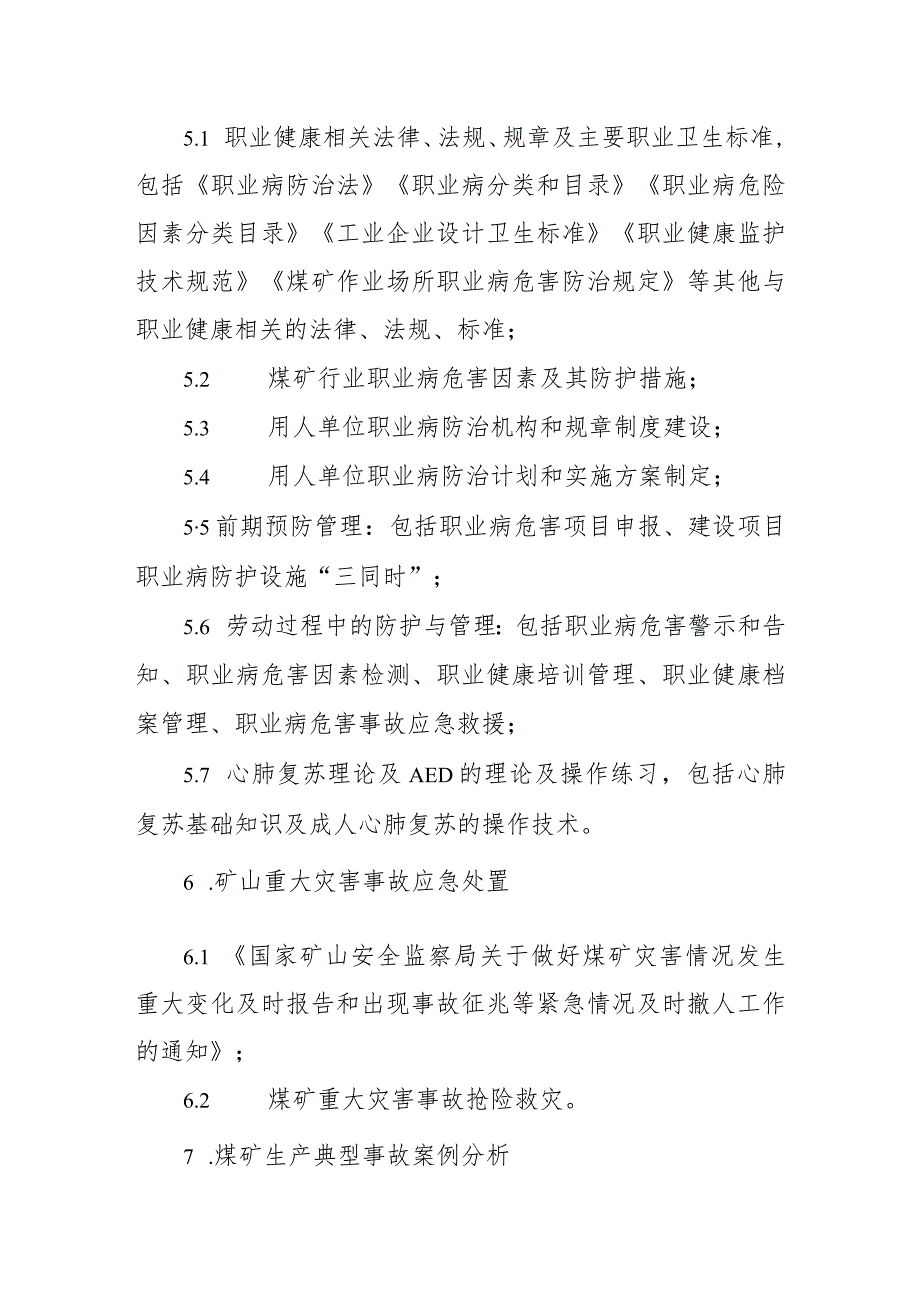 5.1 职业健康相关法律、法规、规章及主要职业卫生标准，
包括《职业病防治法》《职业病分类和目录》《职业病危险
因素分类目录》《工业企业设计卫生标准》《职业健康监护
技术规范》《煤矿作业场所职业病危害防治规定》等其他与
职业健康相关的法律、法规、标准；
5.2 煤矿行业职业病危害因素及其防护措施；
5.3 用人单位职业病防治机构和规章制度建设；
5.4 用人单位职业病防治计划和实施方案制定；
5·5前期预防管理：包括职业病危害项目申报、建设项目
职业病防护设施“三同时”；
5.6 劳动过程中的防护与管理：包括职业病危害警示和告
知、职业病危害因素检测、职业健康培训管理、职业健康档
案管理、职业病危害事故应急救援；
5.7 心肺复苏理论及AED的理论及操作练习，包括心肺
复苏基础知识及成人心肺复苏的操作技术。
6 .矿山重大灾害事故应急处置
6.1 《国家矿山安全监察局关于做好煤矿灾害情况发生
重大变化及时报告和出现事故征兆等紧急情况及时撤人工作
的通知》；
6.2 煤矿重大灾害事故抢险救灾。
7 .煤矿生产典型事故案例分析